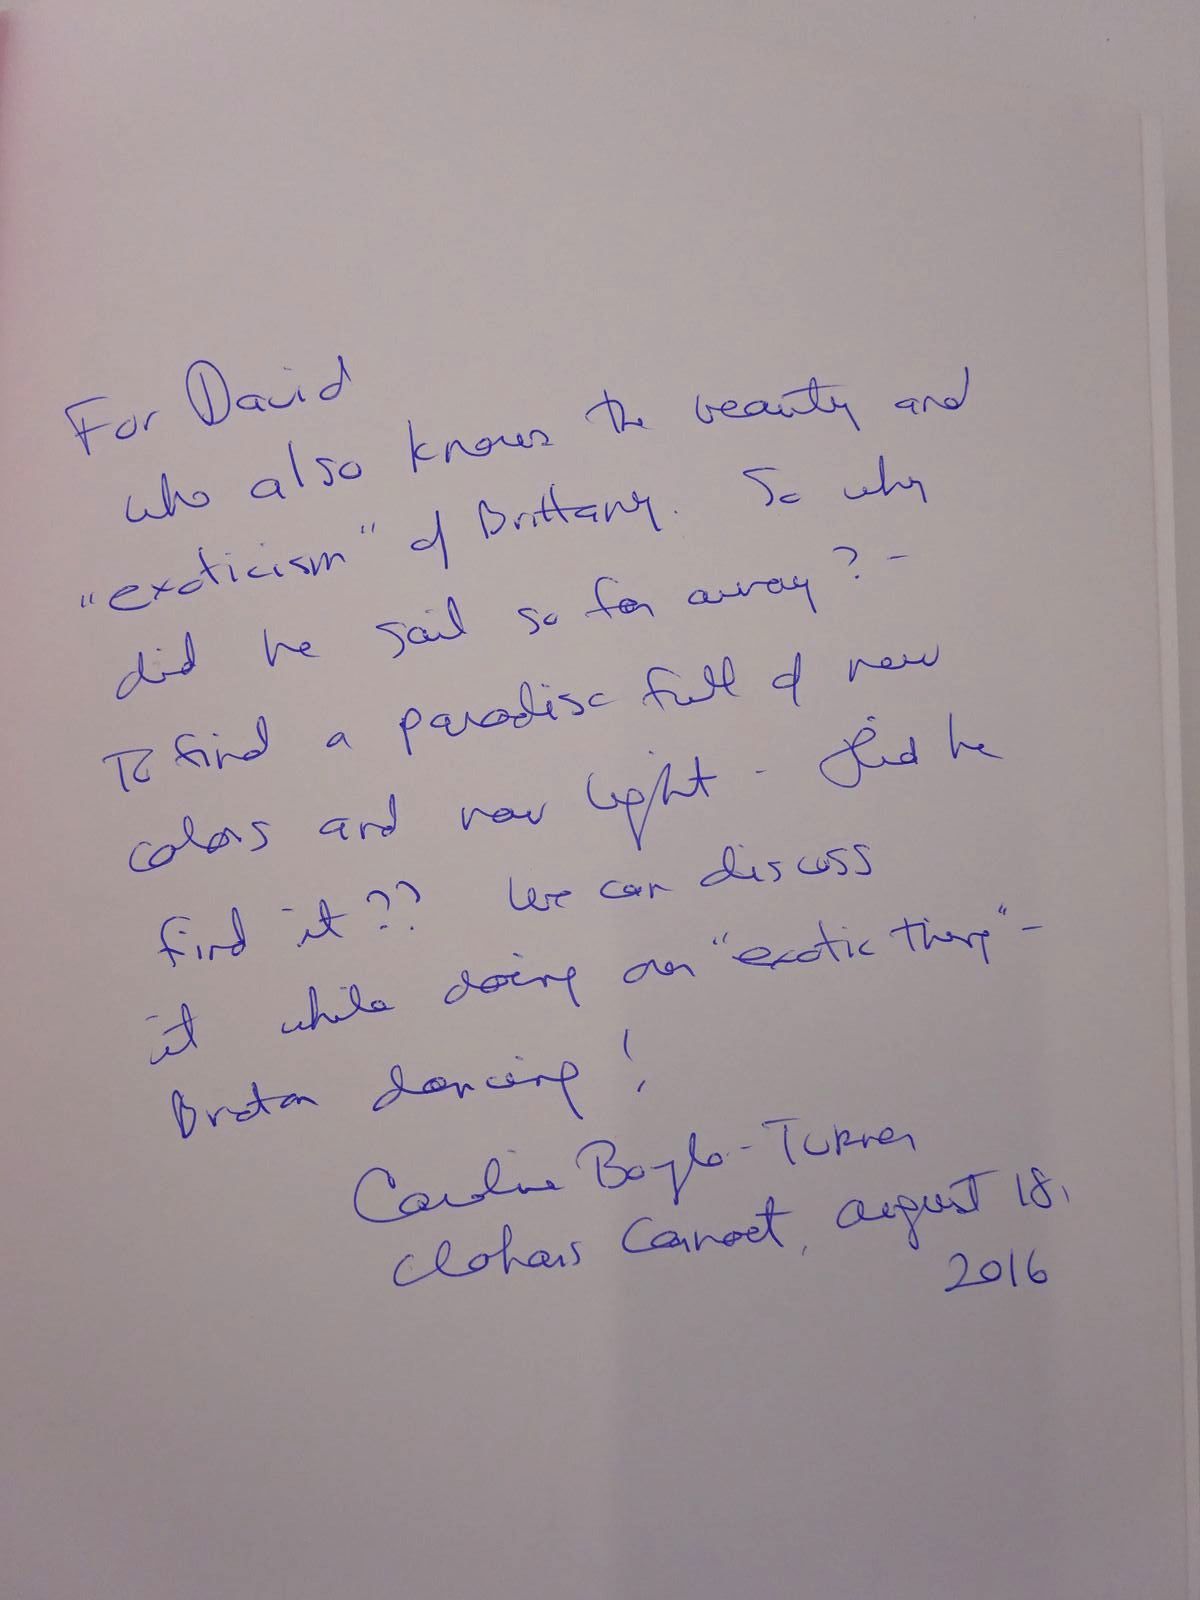 For David
who also knows the beauty and
"exoticism" of Brittany. So why
did he sail so far away? -
To find a paradise full of new
colors and new light - Did he
find it?? We can discuss
it while doing our "exotic thing" -
Breton dancing!
Caroline Boyle-Turner
Clohars Carnoet, August 18,
2016